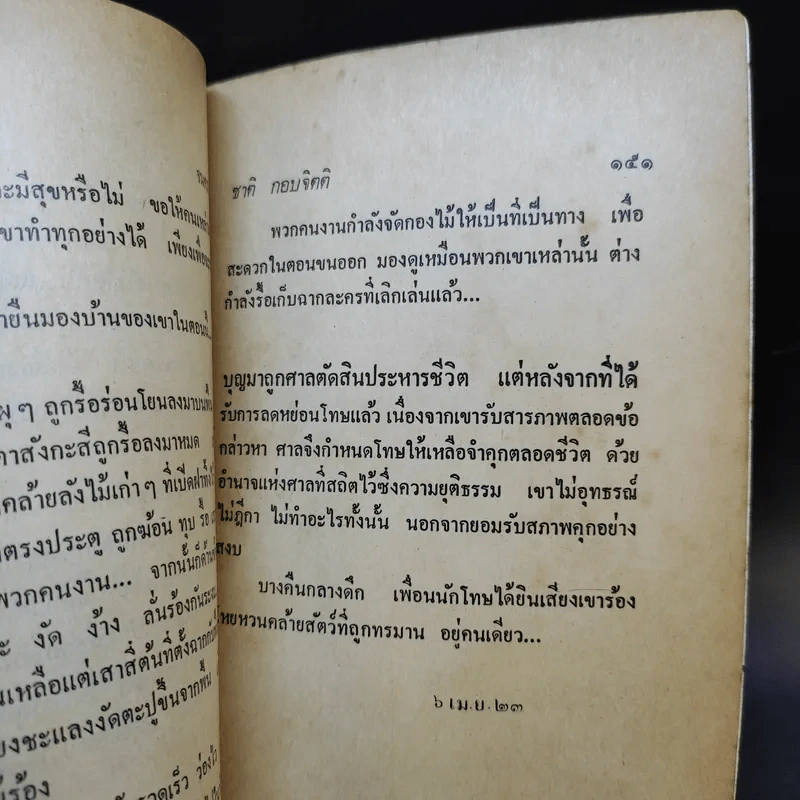 ะมีสุขหรือไม่ ขอให้คนเหล่า
ขาทำทุกอย่างได้ เพียงเพื่อ
ายืนมองบ้านของเขาในตอนนี้
ผุๆ ถูกรื้อร่อนโยนลงมาบนพื้น
าสังกะสีถูกรื้อลงมาหมด
คล้ายลังไม้เก่าๆ ที่เปิดฝาทิ้ง
ตรงประตู ถูกฆ้อน ทุบ รื้อ
พวกคนงาน... จากนั้นก็ด้าน
ะ งัด ง้าง ลั่นร้องกันระ
นเหลือแต่เสาสี่ต้นที่ตั้งฉากกับ
ยงชะแลงงัดตะปูขึ้นจากพื้น
ร้อง
วดเร็ว ว่องไว
ชาติ กอบจิตติ
๑๕๑
พวกคนงานกำลังจัดกองไม้ให้เป็นที่เป็นทาง เพื่อ
สะดวกในตอนขนออก มองดูเหมือนพวกเขาเหล่านั้น ต่าง
กำลังรื้อเก็บฉากละครที่เลิกเล่นแล้ว...
บุญมาถูกศาลตัดสินประหารชีวิต แต่หลังจากที่ได้
รับการลดหย่อนโทษแล้ว เนื่องจากเขารับสารภาพตลอดข้อ
กล่าวหา ศาลจึงกำหนดโทษให้เหลือจำคุกตลอดชีวิต ด้วย
อำนาจแห่งศาลที่สถิตไว้ซึ่งความยุติธรรม เขาไม่อุทธรณ์
ไม่ฎีกา ไม่ทำอะไรทั้งนั้น นอกจากยอมรับสภาพคุกอย่าง
สงบ
บางคืนกลางดึก เพื่อนนักโทษได้ยินเสียงเขาร้อง
โหยหวนคล้ายสัตว์ที่ถูกทรมาน อยู่คนเดียว...
๖ เม.ย. ๒๓